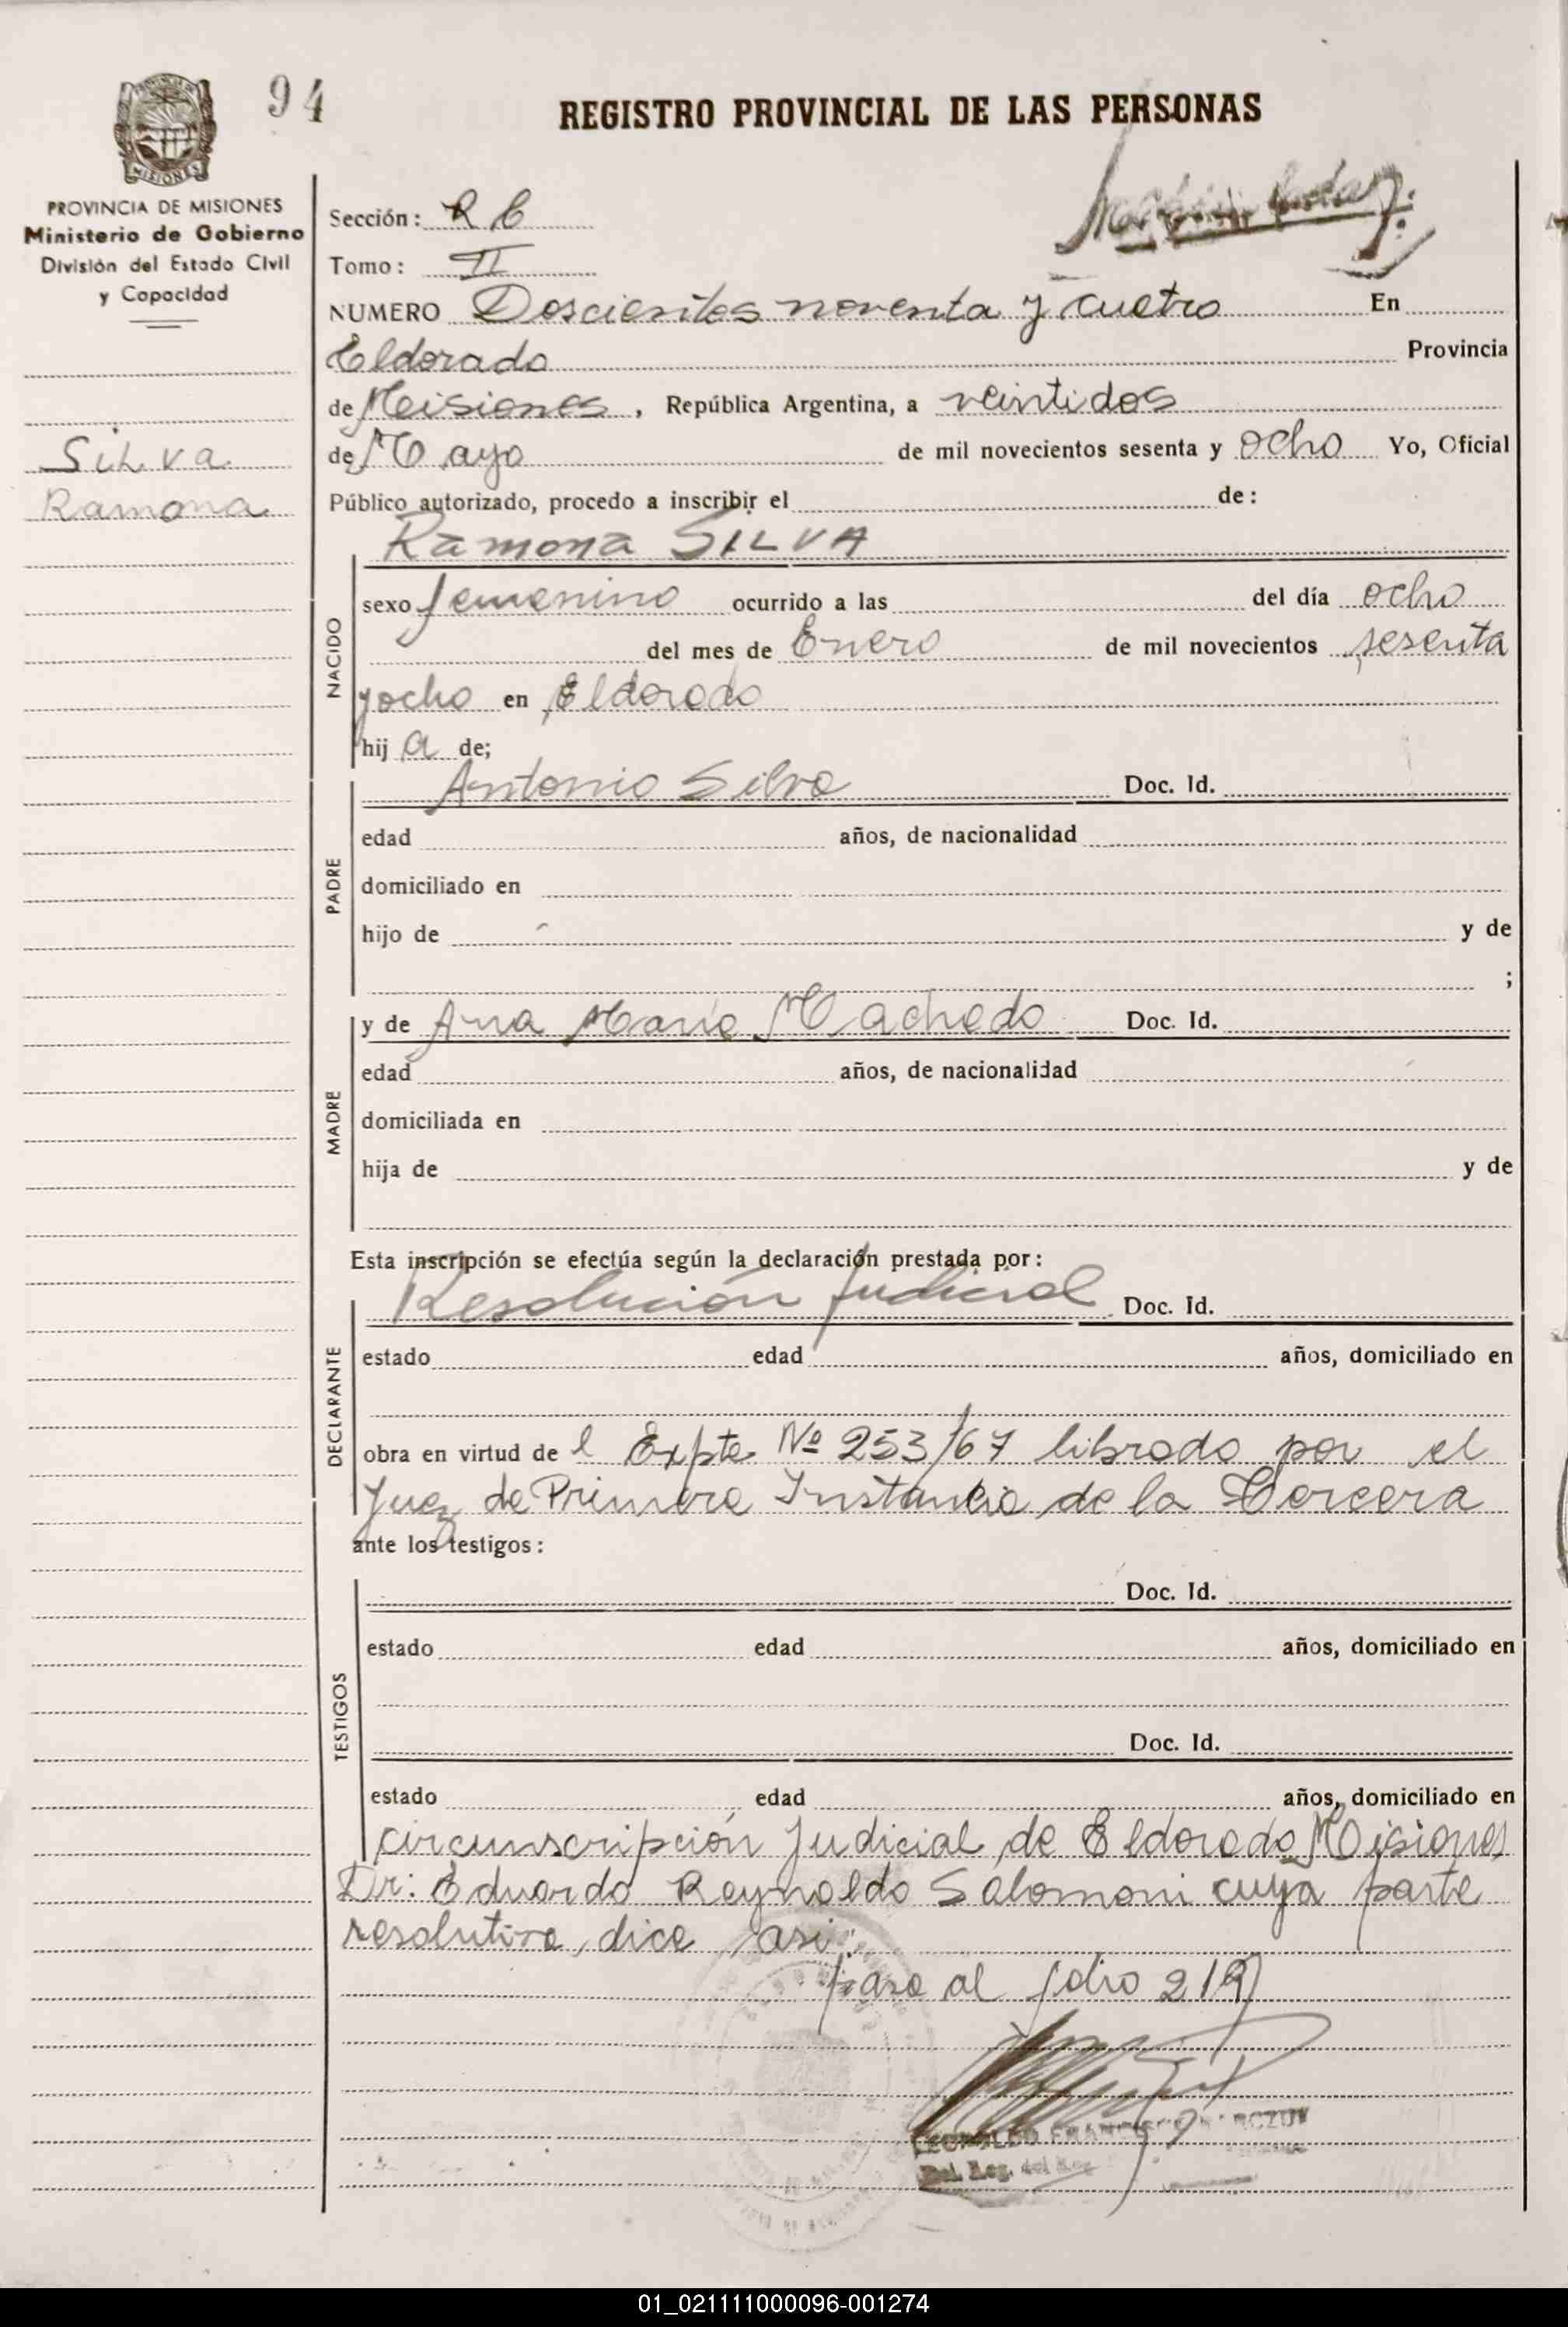 94
REGISTRO PROVINCIAL DE LAS PERSONAS
MISIONES
PROVINCIA DE MISIONES
Ministerio de Gobierno
División del Estado Civil
y Capacidad
SILVA
Ramona
Sección: R C
Tomo: II
NUMERO Doscientos noventa y cuatro En
Eldorado Provincia
de Misiones, República Argentina, a veintidos
de Mayo de mil novecientos sesenta y ocho Yo, Oficial
Público autorizado, procedo a inscribir el de:
Ramona SILVA
NACIDO
sexo femenino ocurrido a las del día ocho
del mes de Enero de mil novecientos sesenta
y ocho en Eldorado
hij a de;
PADRE
Antonio Silva Doc. Id.
edad años, de nacionalidad
domiciliado en
hijo de y de
;
MADRE
y de Ana Maria Machado Doc. Id.
edad años, de nacionalidad
domiciliada en
hija de y de
Esta inscripción se efectúa según la declaración prestada por:
DECLARANTE
Resolución Judicial Doc. Id.
estado edad años, domiciliado en
obra en virtud de l Expte Nº 253/67 librado por el
Juez de Primera Instancia de la Tercera
ante los testigos:
TESTIGOS
Doc. Id.
estado edad años, domiciliado en
Doc. Id.
estado edad años, domiciliado en
circunscripción Judicial de Eldorado Misiones
Dr: Eduardo Reynaldo Salomoni cuya parte
resolutiva, dice asi:
pasa al folio 219
LEOPOLDO FRANCISCO
Del. Reg. del
01_021111000096-001274